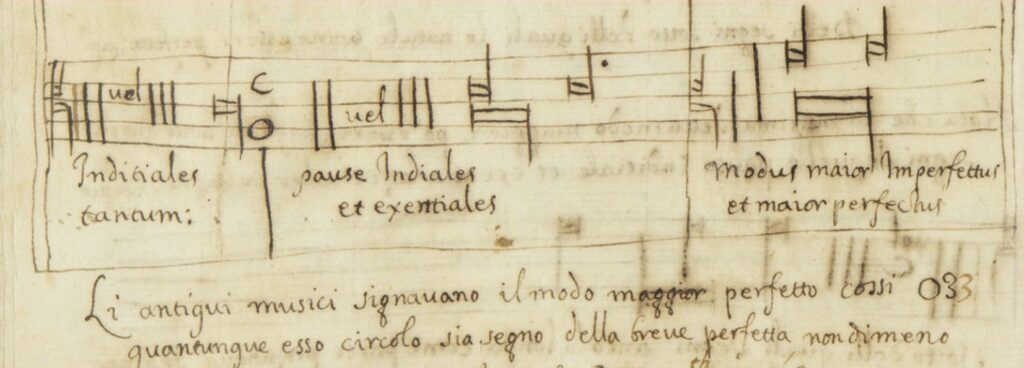 uel
C
uel
Inditiales
tantum:
pause Indiales
et exentiales
Modus maior Imperfectus
et maior perfectus
Li antiqui musici signauano il modo maggior perfetto cossi O33
quantunque esso circolo sia segno della breue perfetta nondimeno